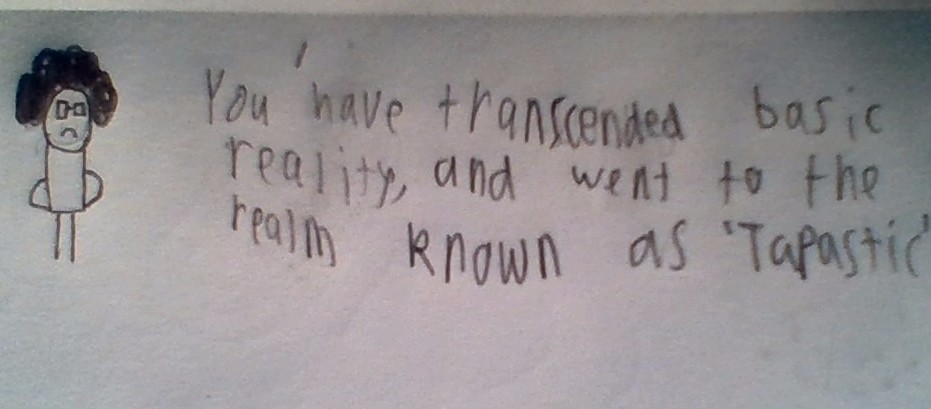 You have transcended basic
reality, and went to the
realm known as 'Tapastic'